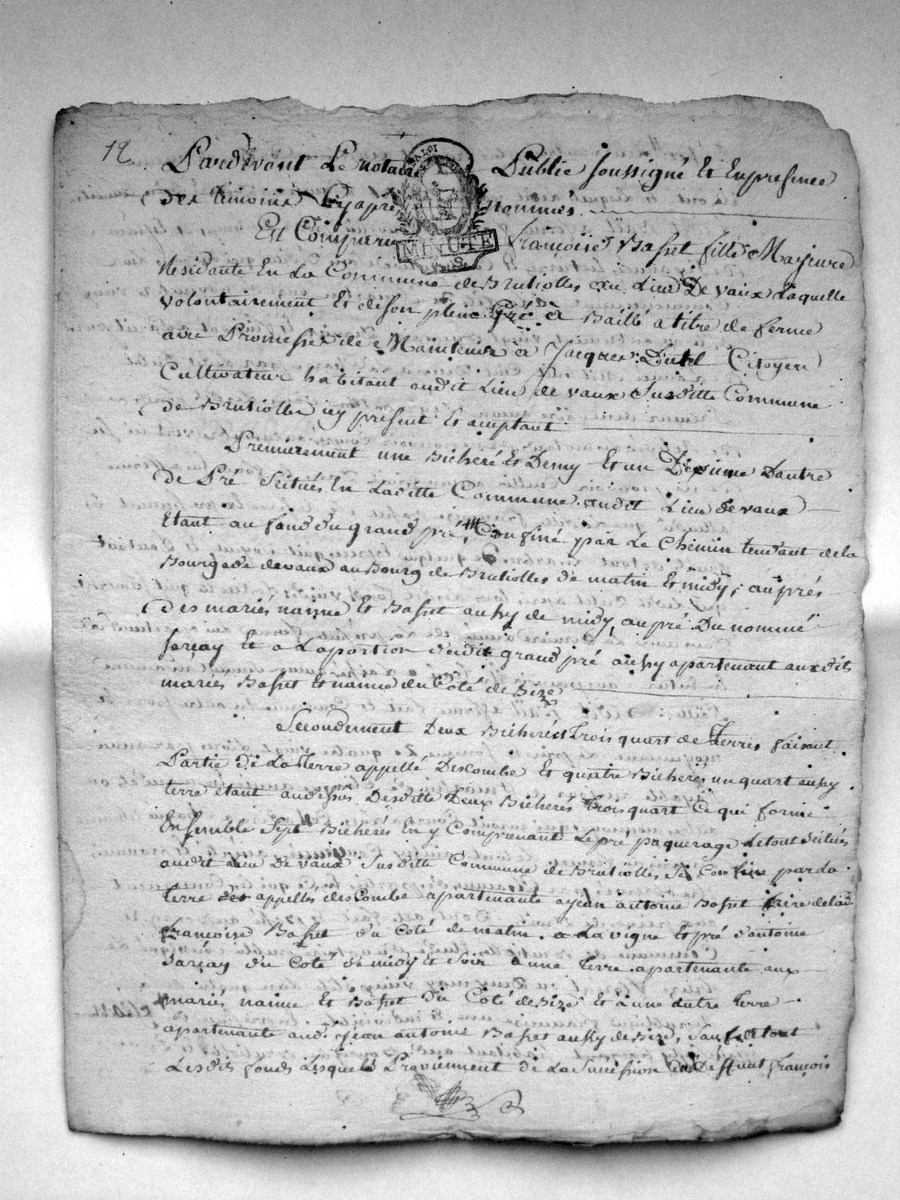 12
Pardevant Le notaire Public soussigné Et En presence
Des temoins Cy apres nommés.
LA LOI
MINUTE
En Comparu françoise Basset fille Majeure
Residante En La Commune de Brutiolles au Lieu De vaux Laquelle
volontairement Et de son plein Gré à Baillé a titre de ferme
avec Promesse de Maintenir à Jacques Dutel Citoyen
Cultivateur habitant audit Lieu de vaux susditte Commune
de Brutiolles icy present Et acceptant
Premierement une Bicheré Et Demy Et un Dixieme Dautre
de Pré Scitués En Laditte Commune audit Lieu de vaux
Etant au fond du grand pré, Confiné par Le Chemin tendant de la
Bourgade devaux au Bourg de Brutiolles de matin Et midy; au prés
des mariés nanne Et Basset aussy de midy, au pré Du nommé
sarcay Et a La portion dudit grand pré aussy apartenant auxdits
mariés Basset Et nanne du Coté de Bize
Secondement Deux Bicherés trois quart de Terres faisant
Partie de La terre appellé Descombe Et quatre Bicherés un quart aussy
terre étant audessus Desditte Deux Bicherés trois quart Ce qui forme
Ensemble Sept Bicherés En y Comprenant Le pré paquerage Le tout Scitués
audit Lieu de vaux Susditte Commune de Brutiolles, Se Confine par La
Terre appellés descombe apartenante a Jean antoine Basset frere de lad
françoise Basset du Coté de matin. a La vigne Et pré d'antoine
Sarcay du Coté de midy Et Soir a une Terre apartenante aux
mariés nanne Et Basset du Coté de Bize Et à une autre terre
apartenante aud. Jean antoine Basset aussy de Bize, Sauf Et tout
Lesdits fonds Lesquels Proviennent de La Succession du Deffunt françois